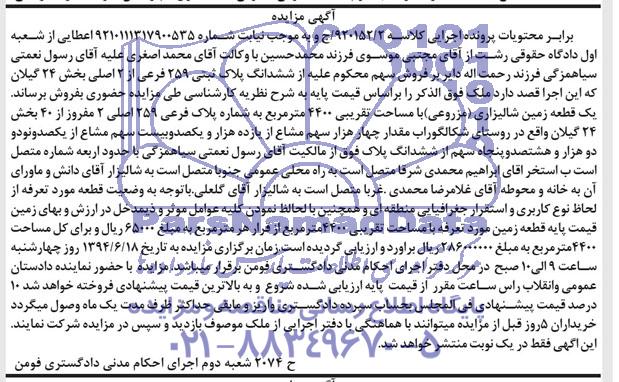 آگهی مزایده
برابر محتویات پرونده اجرایی کلاسه ۹۲۰۱۵۲/۲/ج و به موجب نیابت شماره ۹۲۱۰۱۱۱۳۱۷۹۰۰۵۳۵ اعطایی از شعبه
اول دادگاه حقوقی رشت از آقای مجتبی موسوی فرزند محمدحسین با وکالت آقای محمد اصغری علیه آقای رسول نعمتی
سیاهمزگی فرزند رحمت اله دایر بر فروش سهم محکوم علیه از ششدانگ پلاک ثبتی ۲۵۹ فرعی از ۲ اصلی بخش ۲۴ گیلان
که این اجرا قصد دارد ملک فوق الذکر را براساس قیمت پایه به شرح نظریه کارشناسی طی مزایده حضوری بفروش برساند.
یک قطعه زمین شالیزاری (مزروعی) با مساحت تقریبی ۴۴۰۰ مترمربع به شماره پلاک فرعی ۲۵۹ اصلی ۲ مفروز از ۴۰ بخش
۲۴ گیلان واقع در روستای شکالگوراب مقدار چهار هزار سهم مشاع از یازده هزار و یکصدوبیست سهم مشاع از یکصدونودو
دو هزار و هشتصدوپنجاه سهم از ششدانگ پلاک فوق از مالکیت آقای رسول نعمتی سیاهمزگی با حدود اربعه شمارا متصل
است ب استخر اقای ابراهیم محمدی شرقا متصل است به راه محلی عمومی جنوبا متصل است به شالیزار آقای دانش و ماورای
آن به خانه و محوطه آقای غلامرضا محمدی .غربا متصل است به شالیزار آقای گلعلی.باتوجه به وضعیت قطعه مورد تعرفه از
لحاظ نوع کاربری و استقرار جغرافیایی منطقه ای و همچنین با لحاظ نمودن کلیه عوامل موثر و ذیمدخل در ارزش و بهای زمین
قیمت پایه قطعه زمین مورد تعرفه با مساحت تقریبی ۴۴۰۰مترمربع از قرار هر مترمربع به مبلغ ۶۵۰۰۰ ریال و برای کل مساحت
۴۴۰۰مترمربع به مبلغ ۲۸۶۰۰۰۰۰۰ریال براورد و ارزیابی گردیده است.زمان برگزاری مزایده به تاریخ ۱۳۹۴/۶/۱۸ روز چهارشنبه
ساعت ۹ الی ۱۰ صبح در محل دفتر اجرای احکام مدنی دادگستری فومن برقرار میباشد.مزایده با حضور نماینده دادستان
عمومی وانقلاب راس ساعت مقرر از قیمت پایه ارزیابی شده شروع و به بالاترین قیمت پیشنهادی فروخته خواهد شد ۱۰
درصد قیمت پیشنهادی فی المجلس به حساب سپرده دادگستری واریز و مابقی حداکثر ظرف مدت یک ماه وصول میگردد
خریداران ۵روز قبل از مزایده میتوانند با هماهنگی با دفتر اجرایی از ملک موصوف بازدید و سپس در مزایده شرکت نمایند.
این آگهی فقط در یک نوبت منتشر خواهد شد.
ح ۲۰۷۴ شعبه دوم اجرای احکام مدنی دادگستری فومن
پایگاه اطلاع رسانی مناقصه و مزایده
۰۲۱-۸۸۳۴۹۶۷۰-۵